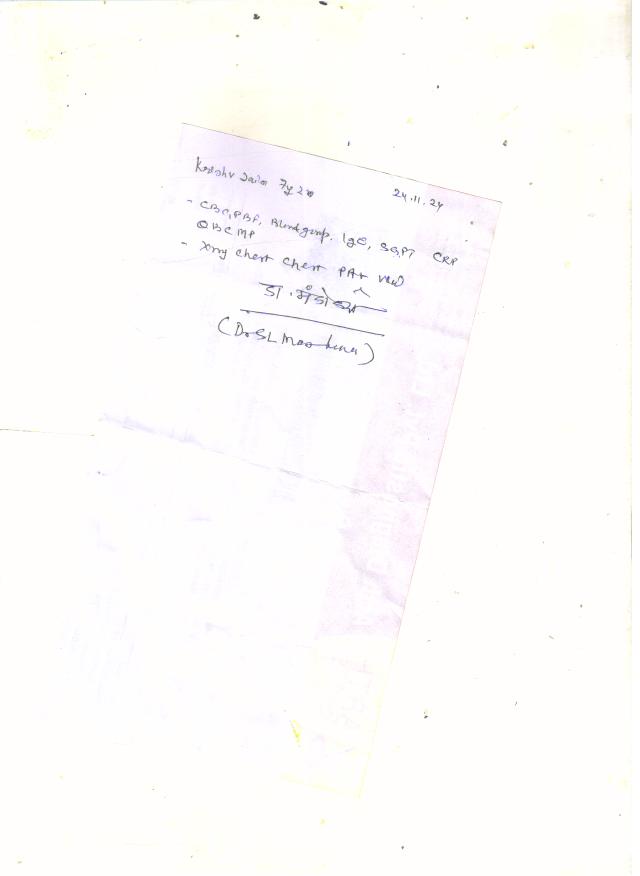 Keshav Jain 7y 2m 24.11.24
- CBC, PBF, Blood group, IgE, SGPT CRP
QBC MP
- Xray chest chest PA view
डा.
(Dr SL